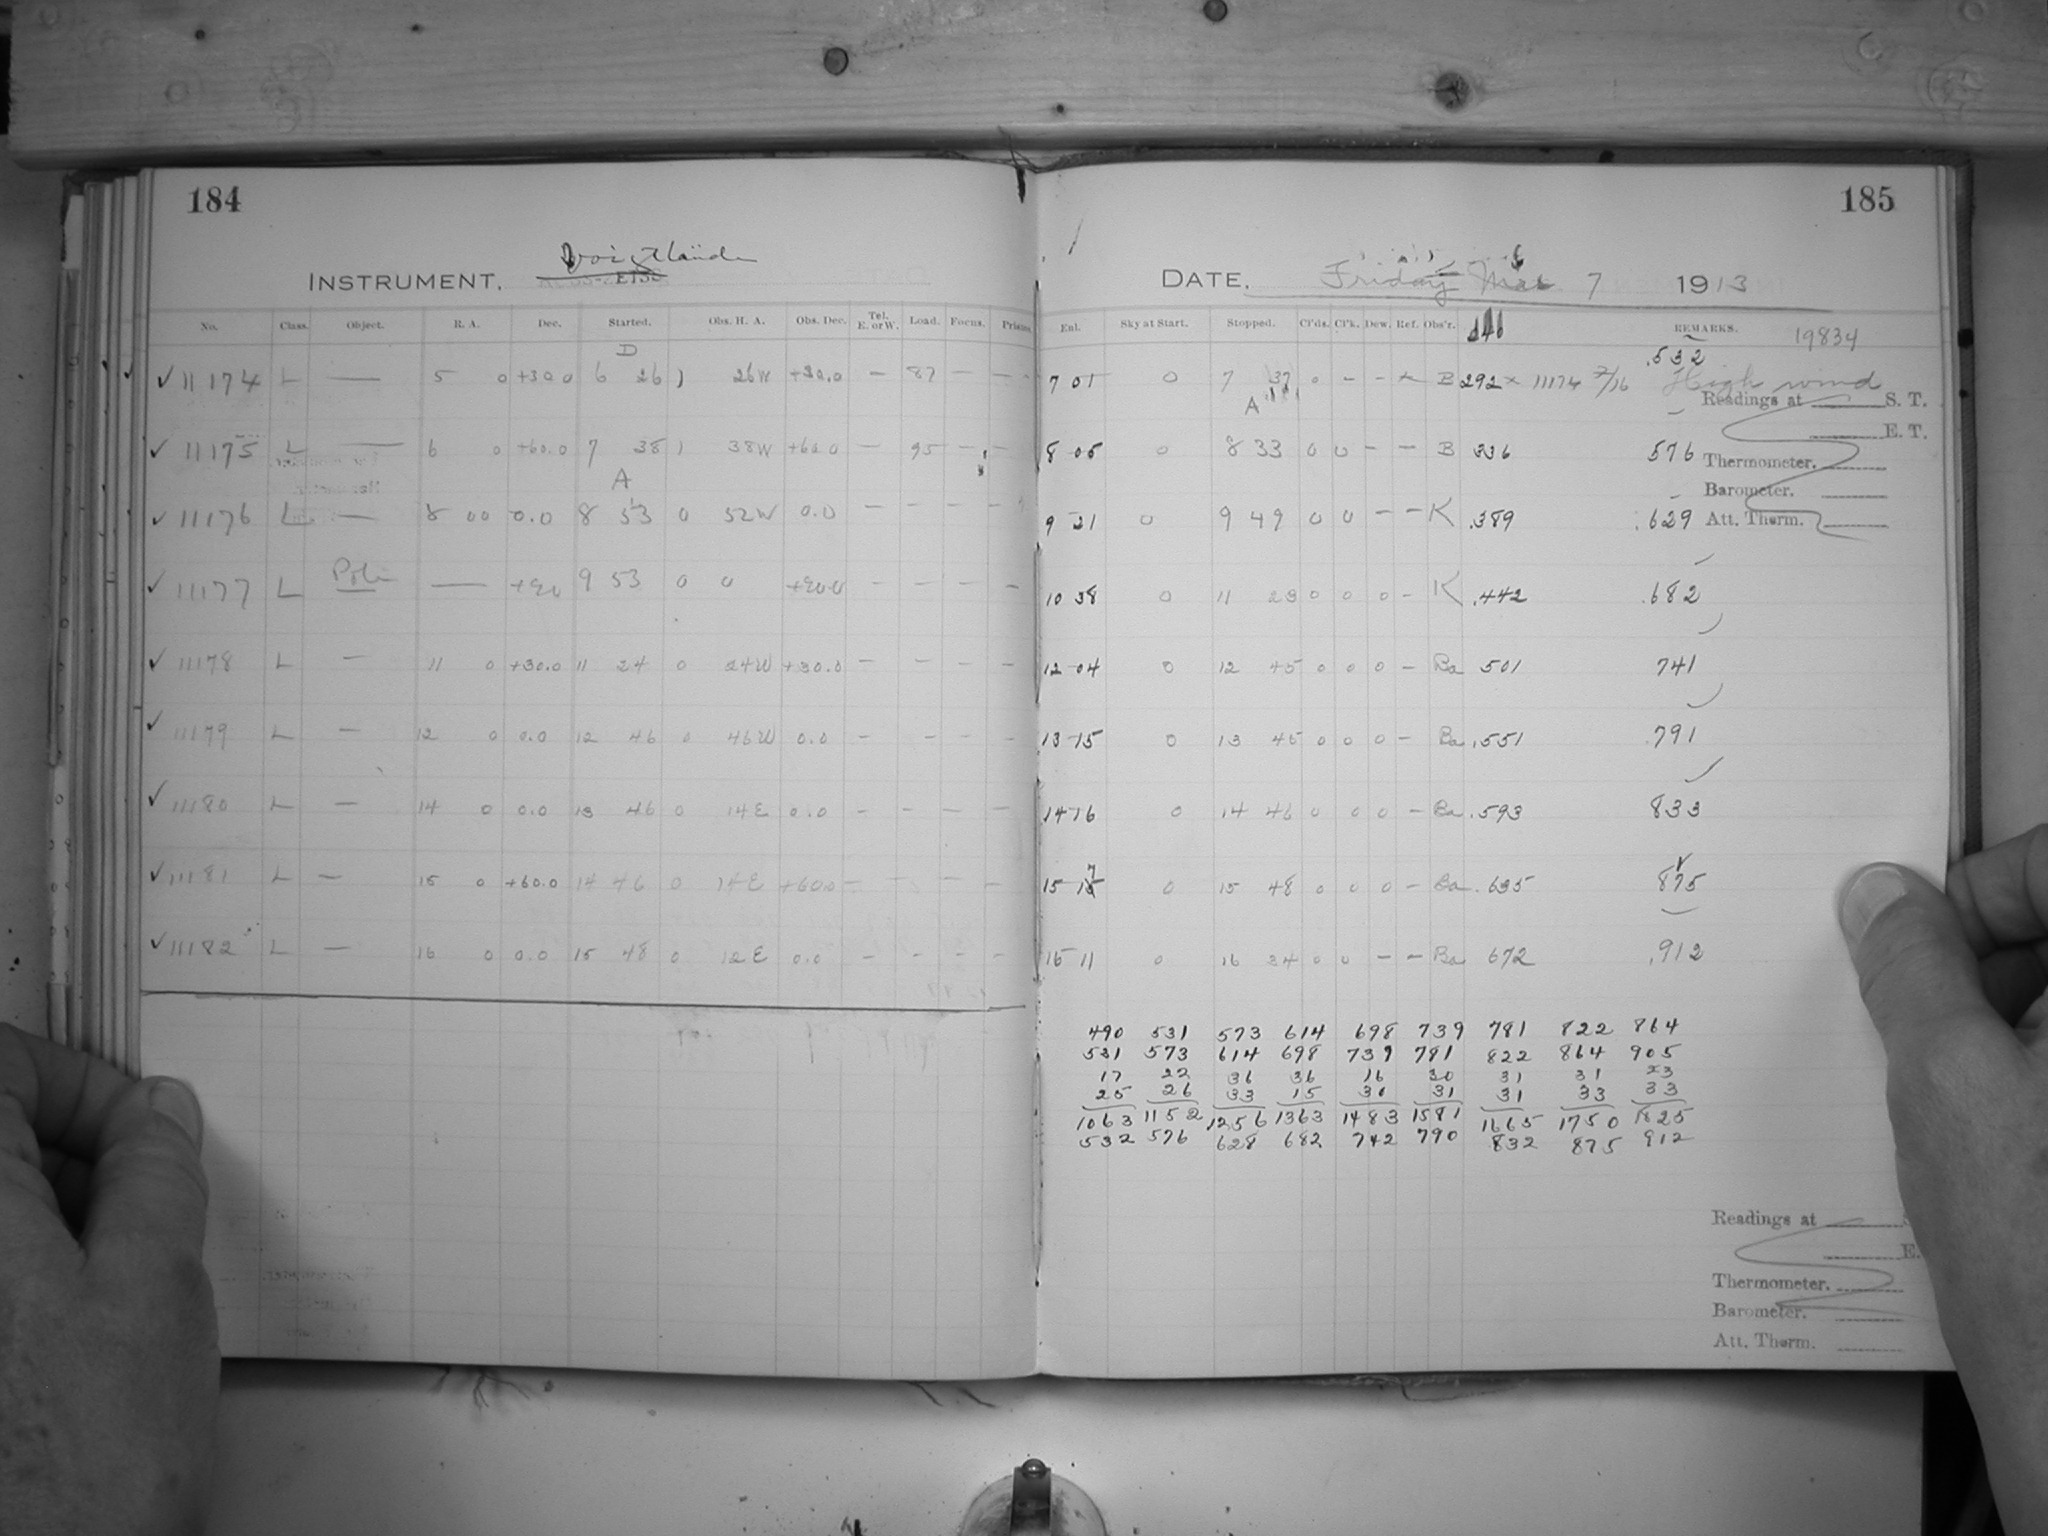 184
Voigtländer
INSTRUMENT.
No. Class. Object. R. A. Dec. Started. Obs. H. A. Obs. Dec. Tel. E. or W. Load. Focus.
D
✓ 11174 L — 5 0 +30.0 6 26 26W +30.0 — 87 — —
✓ 11175 L — 6 0 +60.0 7 38 38W +60.0 — 95 — —
A
✓ 11176 L — 8 00 0.0 8 53 0 52W 0.0 — — —
✓ 11177 L Pole — +90 9 53 0 0 +90.0 — — — —
✓ 11178 L — 11 0 +30.0 11 24 0 24W +30.0 — — — —
✓ 11179 L — 12 0 0.0 12 46 0 46W 0.0 — — — —
✓ 11180 L — 14 0 0.0 13 46 0 14E 0.0 — — — — —
✓ 11181 L — 15 0 +60.0 14 46 0 14E +60.0 — — — — —
✓ 11182 L — 16 0 0.0 15 48 0 12E 0.0 — — — —
185
DATE. Friday Mar 7 1913
Enl. Sky at Start. Stopped. Cl'ds. Cl'k. Dew. Ref. Obs'r. REMARKS. 19834
.532
7 01 0 7 37 0 — — B 292 × 11174 High wind
Readings at S. T.
A
E. T.
8 05 0 8 33 0 0 — — B 336 576
Thermometer.
Barometer.
9 21 0 9 49 0 0 — — K .389 .629
Att. Therm.
10 38 0 11 23 0 0 0 — K .442 .682
12 04 0 12 45 0 0 0 — Ba 501 741
13 15 0 13 45 0 0 0 — Ba .551 .791
14 16 0 14 46 0 0 0 — Ba .593 833
15 17 0 15 48 0 0 0 — Ba .635 875
16 11 0 16 34 0 0 — — Ba 672 .912
490 531 573 614 698 739 781 822 864
531 573 614 698 739 781 822 864 905
17 22 36 36 16 30 31 31 23
25 26 33 15 30 31 31 33 33
1063 1152 1256 1363 1483 1581 1665 1750 1825
532 576 628 682 742 790 832 875 912
Readings at
E.
Thermometer.
Barometer.
Att. Therm.